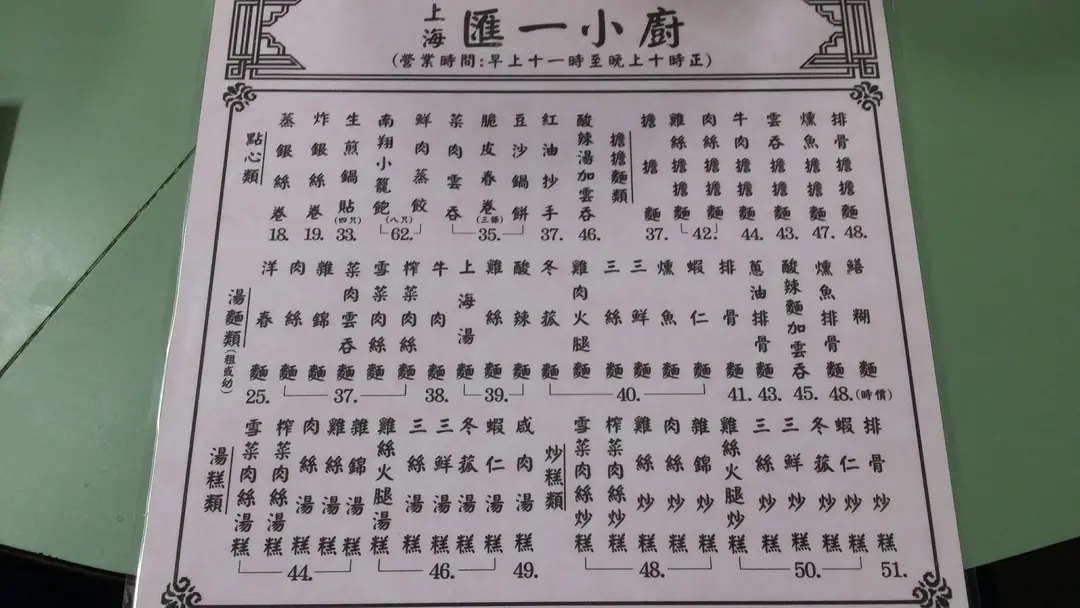 上海
匯一小廚
(營業時間:早上十一時至晚上十時正)
點心類
蒸銀絲卷
18.
炸銀絲卷
19.
生煎鍋貼(四只)
33.
南翔小籠飽(八只)
鮮肉蒸餃
62.
菜肉雲吞
脆皮春卷(三條)
豆沙鍋餅
35.
紅油抄手
37.
酸辣湯加雲吞
46.
擔擔麵類
擔擔麵
37.
雞絲擔擔麵
肉絲擔擔麵
42.
牛肉擔擔麵
44.
雲吞擔擔麵
43.
燻魚擔擔麵
47.
排骨擔擔麵
48.
湯麵類(粗或幼)
洋春麵
25.
肉絲麵
雜錦麵
菜肉雲吞麵
雪菜肉絲麵
榨菜肉絲麵
37.
牛肉麵
38.
上海湯麵
雞絲麵
酸辣麵
39.
冬菰麵
雞肉火腿麵
三絲麵
三鮮麵
燻魚麵
蝦仁麵
40.
排骨麵
41.
蔥油排骨麵
43.
酸辣麵加雲吞
45.
燻魚排骨麵
48.
鱔糊麵
(時價)
湯糕類
雪菜肉絲湯糕
榨菜肉絲湯糕
肉絲湯糕
雞絲湯糕
雜錦湯糕
44.
雞絲火腿湯糕
三絲湯糕
三鮮湯糕
冬菰湯糕
蝦仁湯糕
46.
咸肉湯糕
49.
炒糕類
雪菜肉絲炒糕
榨菜肉絲炒糕
雞絲炒糕
肉絲炒糕
雜錦炒糕
48.
雞絲火腿炒糕
三絲炒糕
三鮮炒糕
冬菰炒糕
蝦仁炒糕
50.
排骨炒糕
51.